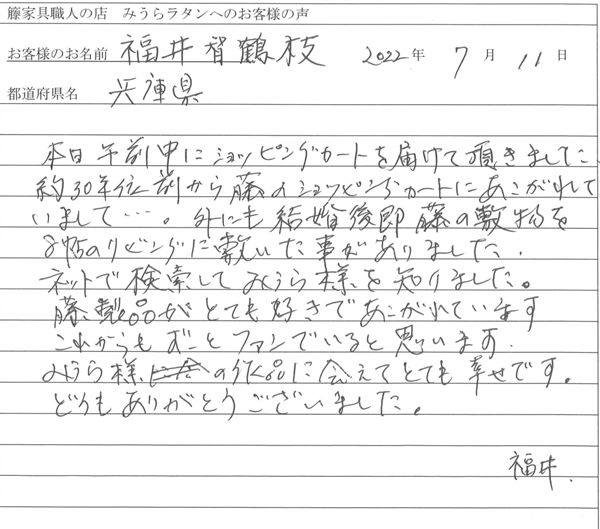 籐家具職人の店 みうらラタンへのお客様の声
お客様のお名前 福井智鶴枝 2022年 7月 11日
都道府県名 兵庫県
本日午前中にショッピングカートを届けて頂きました。
約30年位前から藤のショッピングカートにあこがれて
いまして…。外にも結婚後即藤の敷物を
8帖のリビングに敷いた事がありました。
ネットで検索してみうら様を知りました。
藤製品がとても好きであこがれています
これからもずーとファンでいると思います。
みうら様の作品に会えてとても幸せです。
どうもありがとうございました。
福井.